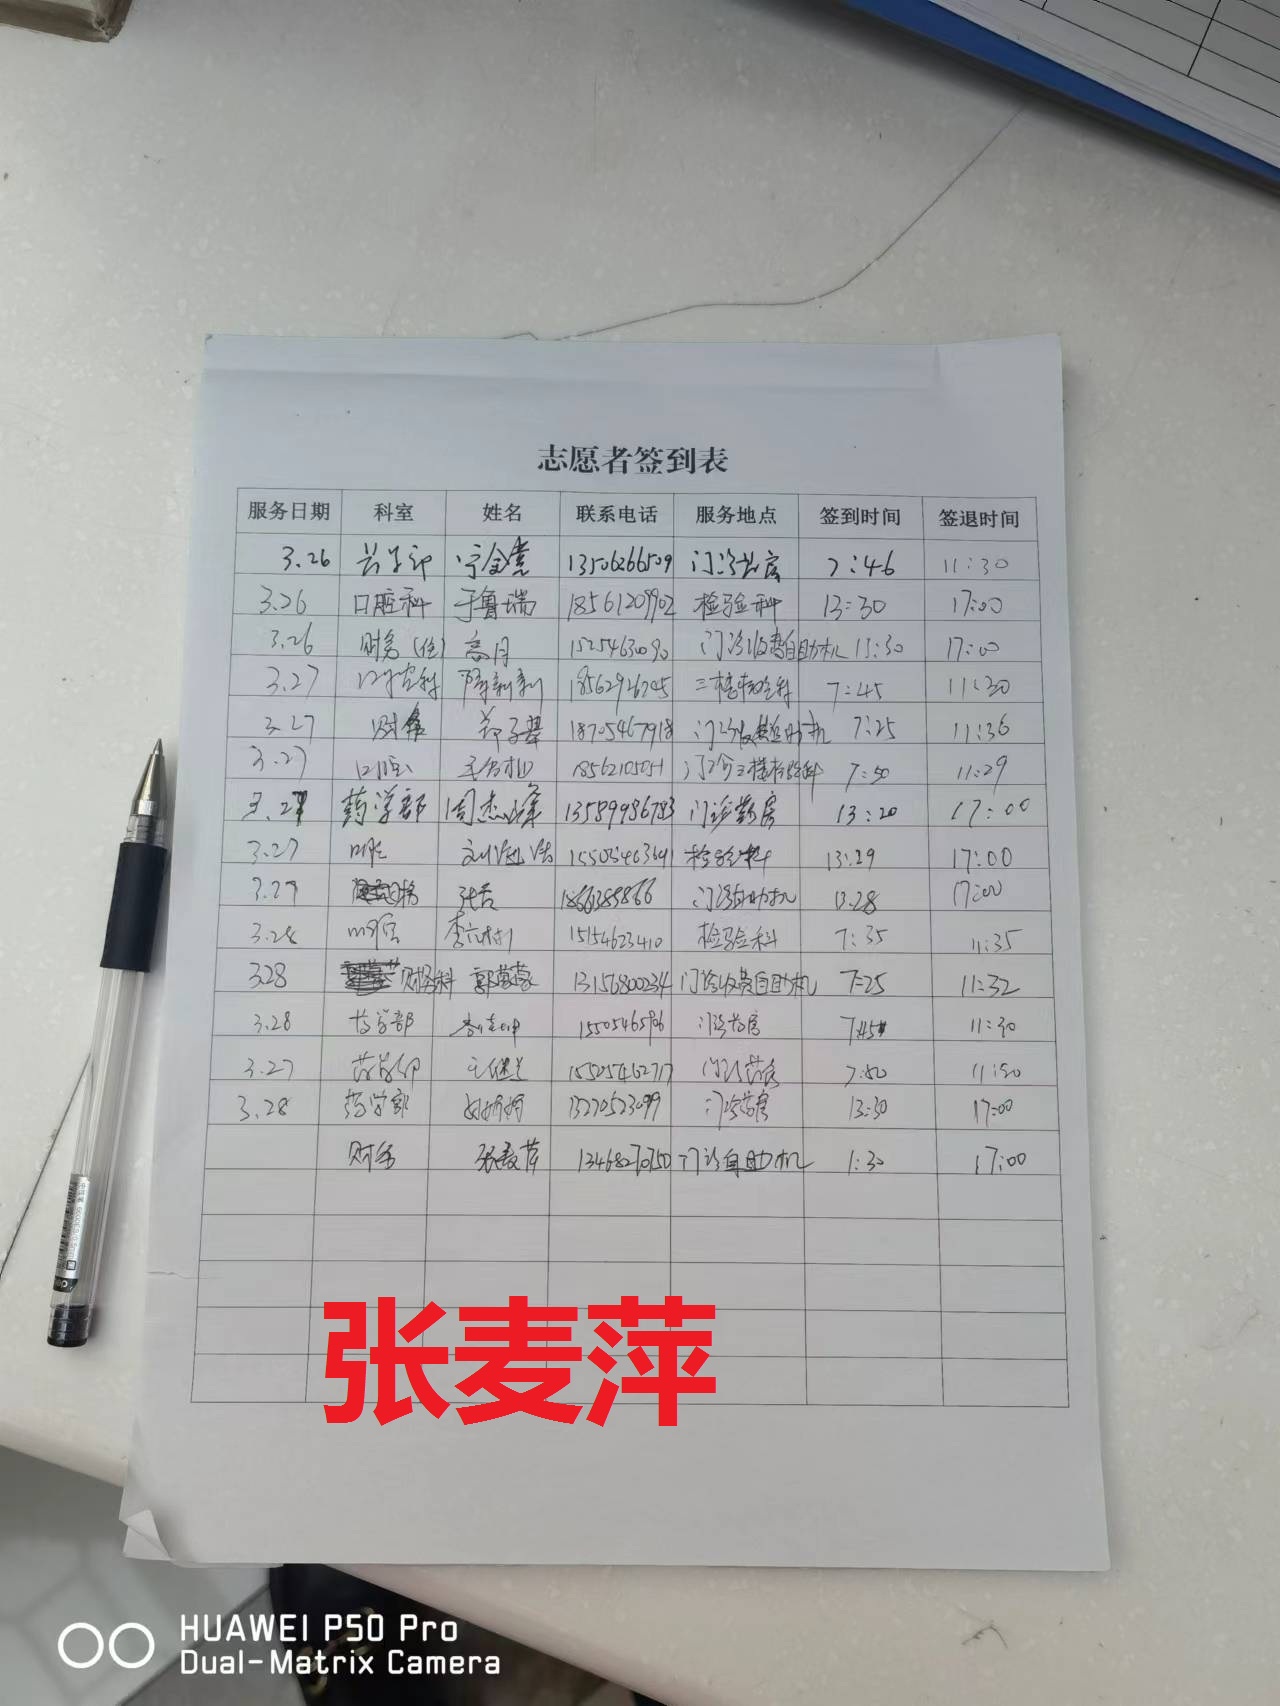 志愿者签到表
服务日期 科室 姓名 联系电话 服务地点 签到时间 签退时间
3.26 13506266509 7:46 11:30
3.26 口腔科 于鲁瑞 18561209902 检验科 13:30 17:00
3.26 财务 高月 15254630090 门诊收费自助机 13:30 17:00
3.27 口腔科 18562926745 三楼检验科 7:45 11:30
3.27 财务 18705467918 7:25 11:36
3.27 口腔 18562105051 门诊三楼检验科 7:50 11:29
3.27 药学部 周杰峰 13589986783 门诊药房 13:20 17:00
3.27 口腔 检验科 13:29 17:00
3.27 门诊自助机 13:28 17:00
3.28 口腔 15154623410 检验科 7:35 11:35
3.28 财务科 郭蒙蒙 13156800234 门诊收费自助机 7:25 11:32
3.28 药学部 门诊药房 7:45 11:30
3.27 药学部 15505462717 门诊药房 7:50 11:30
3.28 药学部 13270523099 门诊药房 13:30 17:00
财务 张麦萍 13468270750 门诊自助机 1:30 17:00
张麦萍
HUAWEI P50 Pro
Dual-Matrix Camera